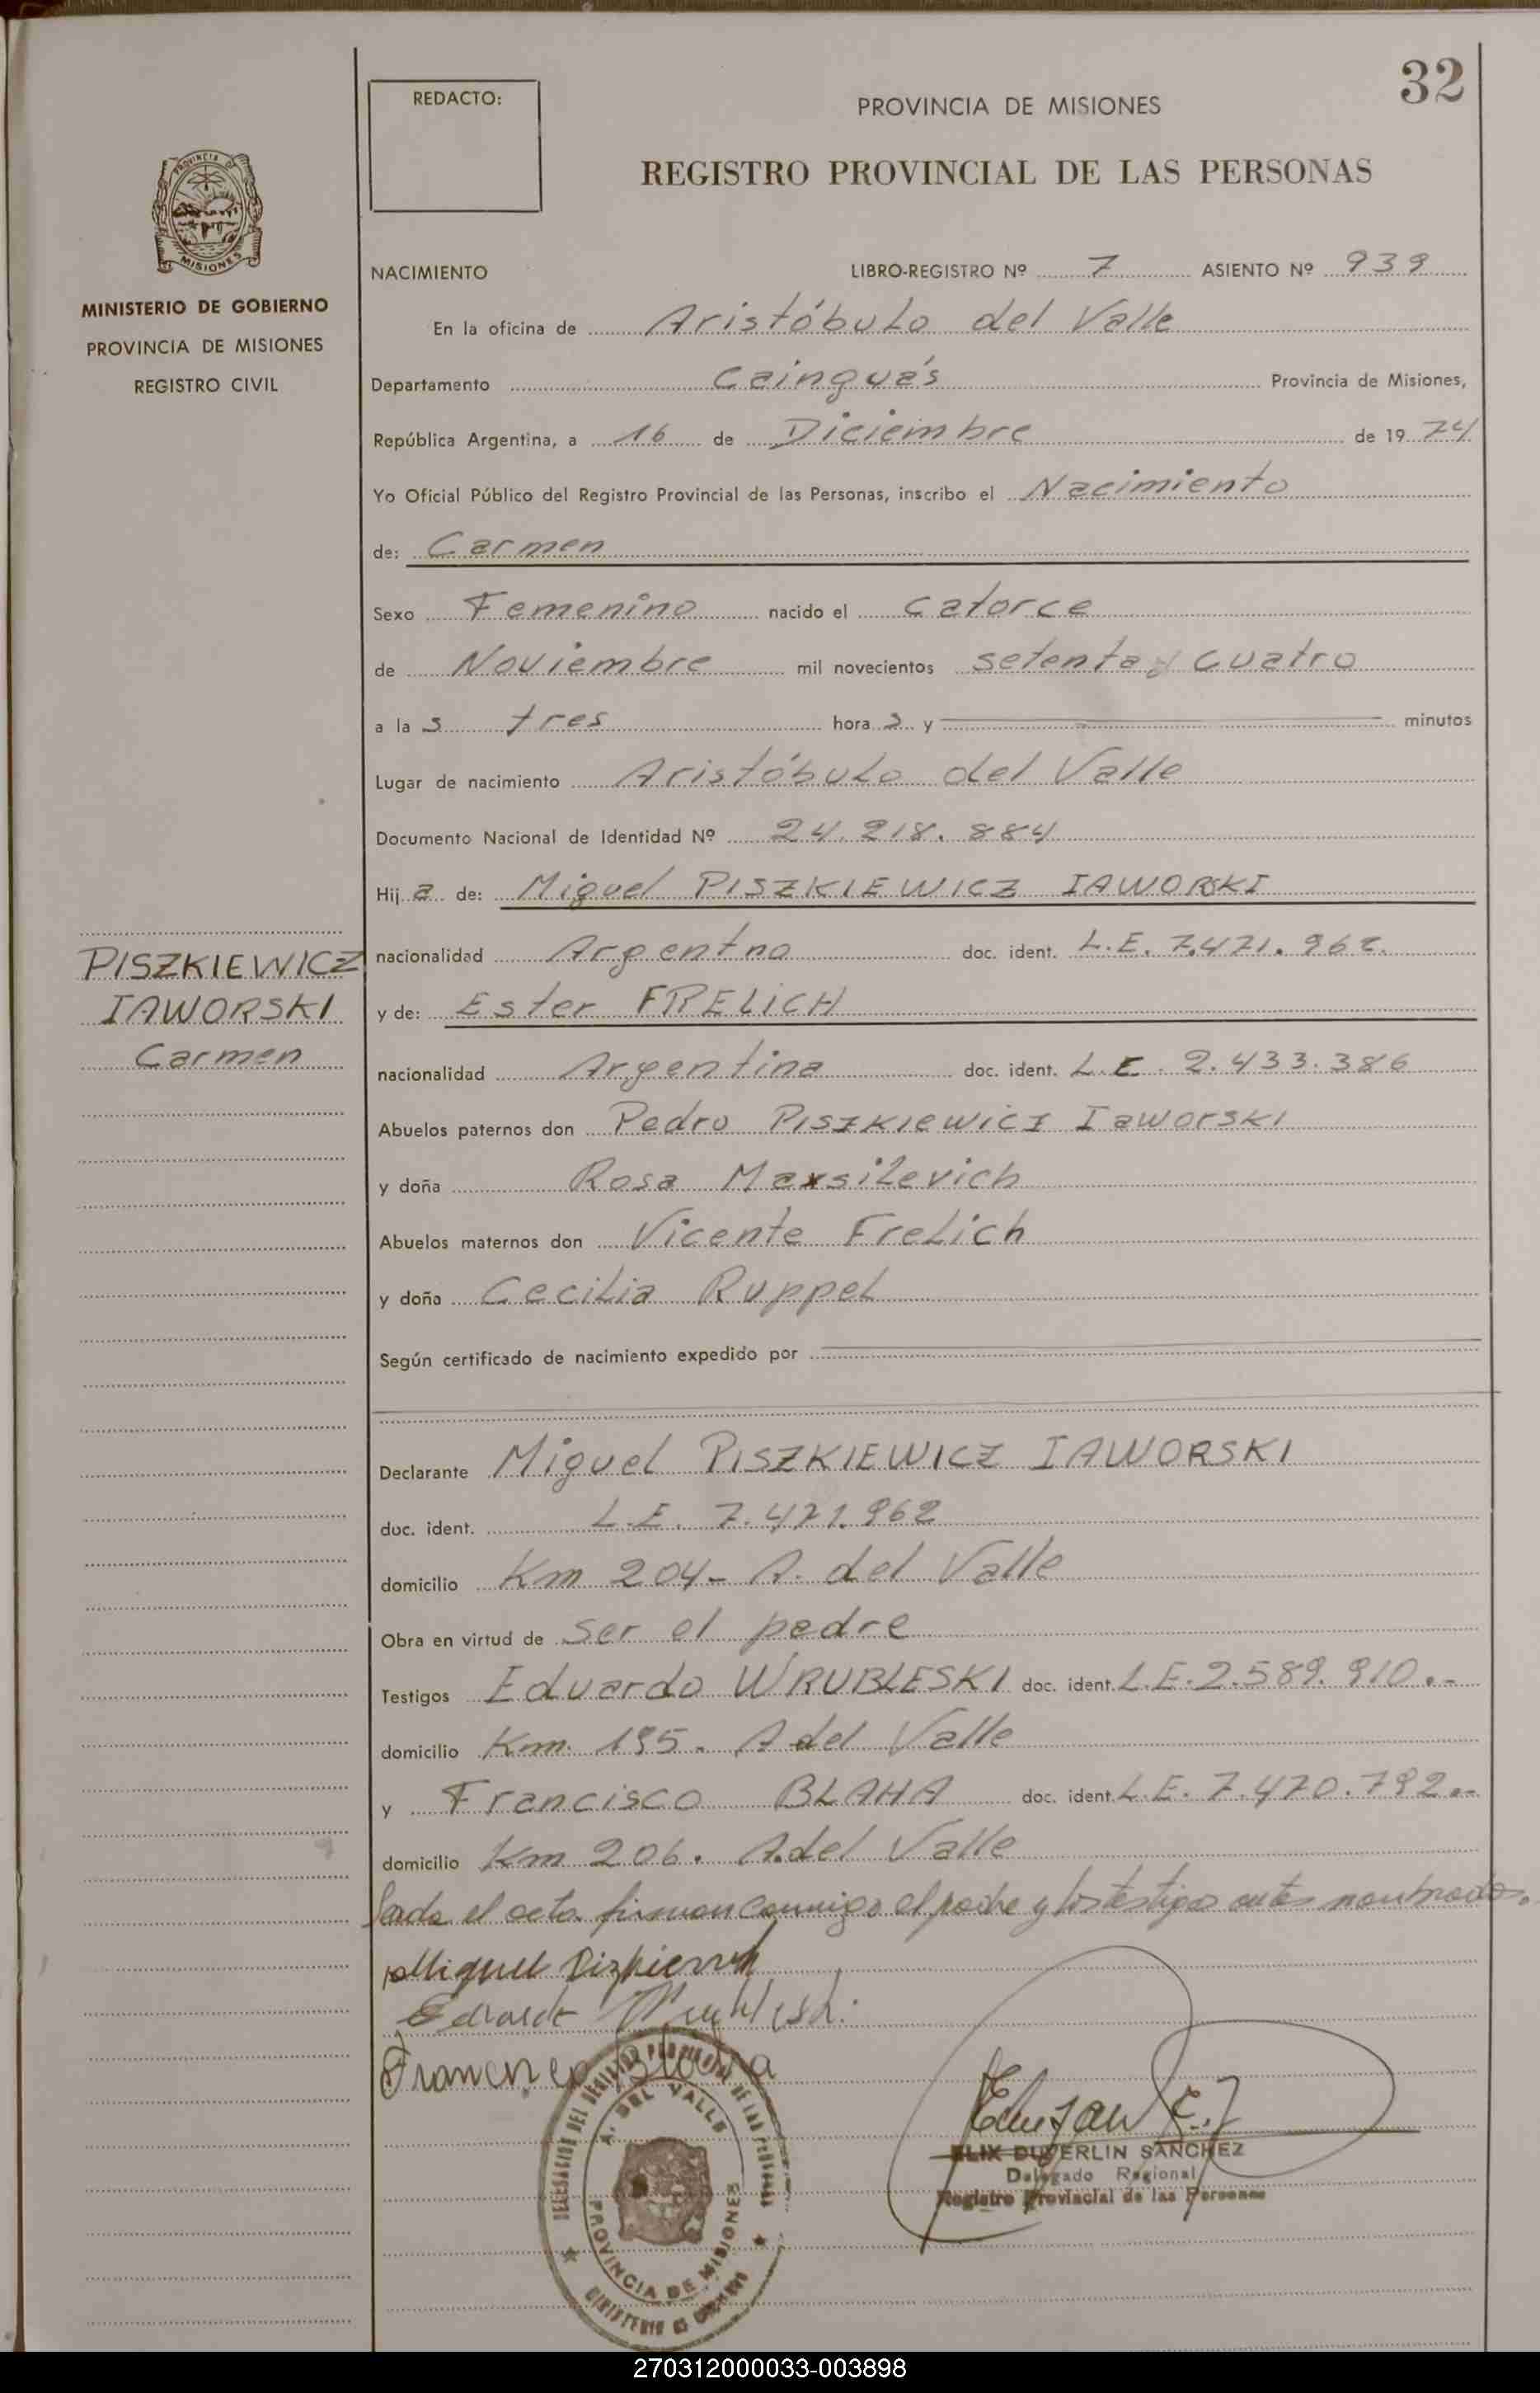 32
REDACTO:
PROVINCIA DE MISIONES
REGISTRO PROVINCIAL DE LAS PERSONAS
PROVINCIA DE
MISIONES
MINISTERIO DE GOBIERNO
PROVINCIA DE MISIONES
REGISTRO CIVIL
NACIMIENTO LIBRO-REGISTRO Nº 7 ASIENTO Nº 939
En la oficina de Aristóbulo del Valle
Departamento Cainguás Provincia de Misiones,
República Argentina, a 16 de Diciembre de 1974
Yo Oficial Público del Registro Provincial de las Personas, inscribo el Nacimiento
de: Carmen
Sexo Femenino nacido el catorce
de Noviembre mil novecientos setenta y cuatro
a la s tres hora s y minutos
Lugar de nacimiento Aristóbulo del Valle
Documento Nacional de Identidad Nº 24.218.884
Hij a de: Miguel PISZKIEWICZ IAWORSKI
nacionalidad Argentna doc. ident. L.E. 7.471.962.
y de: Ester FRELICH
nacionalidad Argentina doc. ident. L.E. 2.433.386
PISZKIEWICZ
IAWORSKI
Carmen
Abuelos paternos don Pedro Piszkiewicz Iaworski
y doña Rosa
Abuelos maternos don Vicente Frelich
y doña Cecilia Ruppel
Según certificado de nacimiento expedido por
Declarante Miguel PISZKIEWICZ IAWORSKI
doc. ident. L.E. 7.471.962
domicilio Km 204- A. del Valle
Obra en virtud de ser el padre
Testigos Eduardo WRUBLESKI doc. ident. L.E. 2.589.910.-
domicilio Km. 195. A del Valle
y Francisco BLAHA doc. ident. L.E. 7.470.792.-
domicilio Km 206. A. del Valle
Leida el acta firman conmigo el padre y los testigos antes nombrados.
Miguel
Eduardo
Francisco Blaha
DELEGACION DEL REGISTRO PROVINCIAL DE LAS PERSONAS
A. DEL VALLE
PROVINCIA DE MISIONES
MINISTERIO DE GOBIERNO
ELIX DUVERLIN SANCHEZ
Delegado Regional
Registro Provincial de las Personas
270312000033-003898